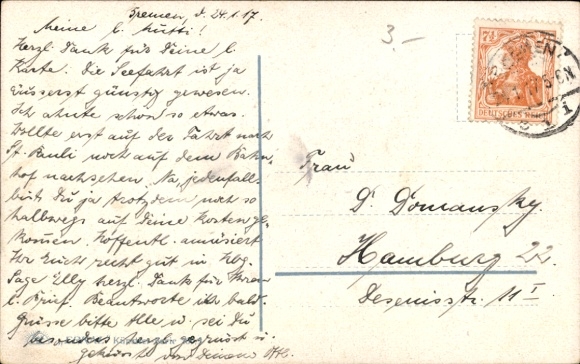 Bremen, d. 24.1.17.
Meine l. Mutti!
Herzl. Dank für Deine l.
Karte. Die Seefahrt ist ja
äusserst günstig gewesen.
Ich ahnte schon so etwas.
Wollte erst auf der Fahrt nach
St. Pauli noch auf dem Bahn-
hof nachsehen. Na, jedenfalls
bist Du ja trotzdem noch so
halbwegs auf Deine Kosten ge-
kommen. Hoffentl. amüsiert
Ihr Euch recht gut in Hbg.
Sage Elly herzl. Dank für ihren
l. Brief. Beantworte ihn bald.
Grüsse bitte Alle u. sei Du
besonders herzl. gegrüsst u.
geküsst von Deinem
3.-
7½
DEUTSCHES REICH
BREMEN
Frau
D. Domansky.
Hamburg 22.
Desenisstr. 11 I